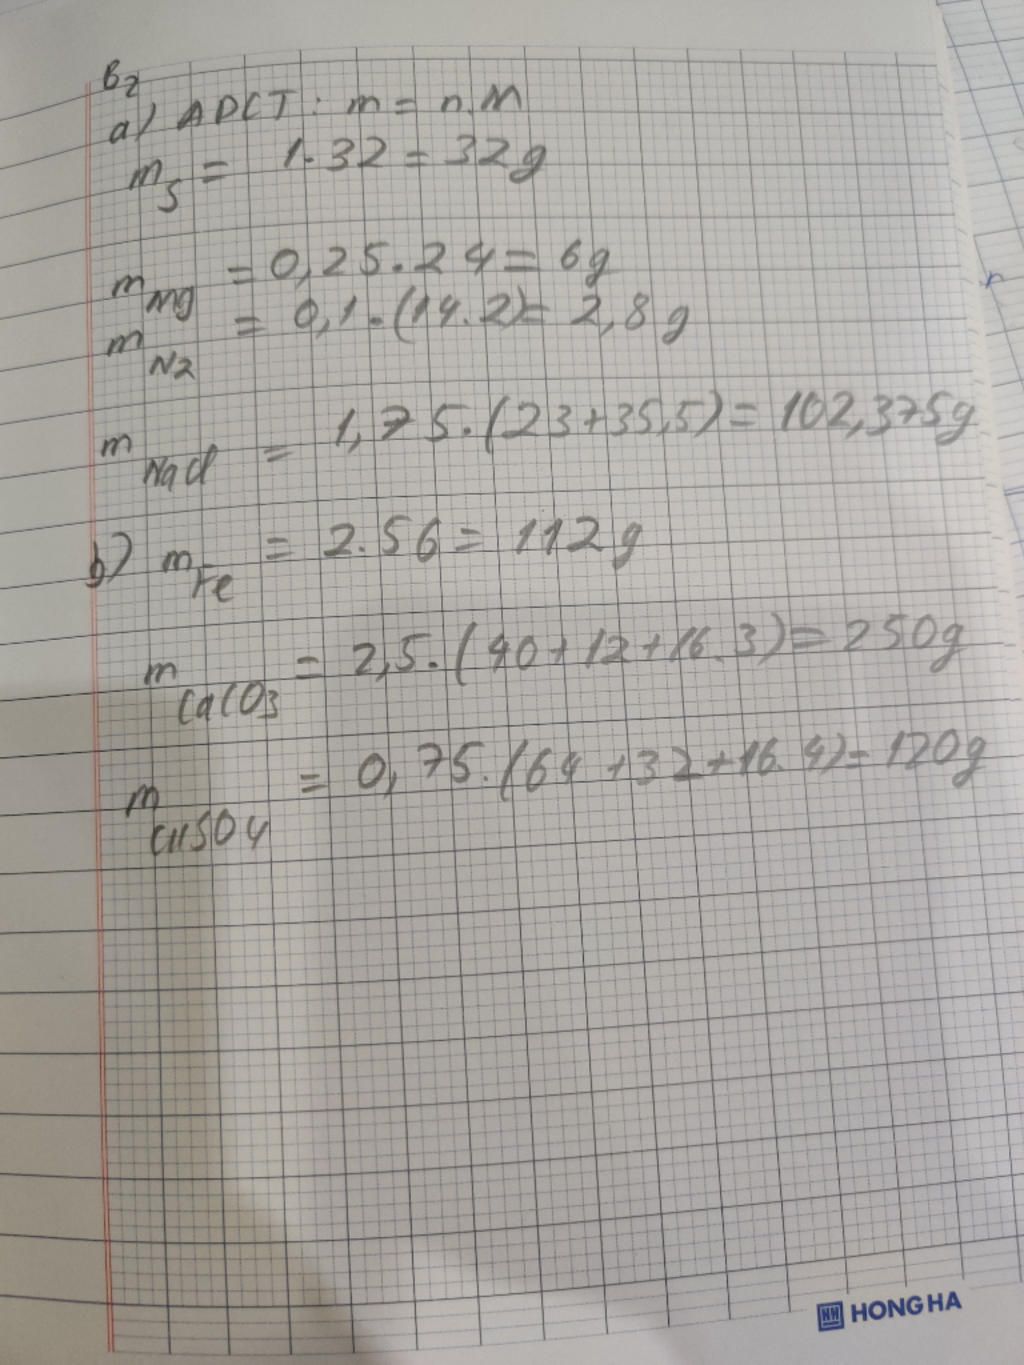 B2
a) ADCT: m = n.M
mS = 1.32 = 32g
mMg = 0,25.24 = 6g
mN2 = 0,1.(14.2) = 2,8g
mNaCl = 1,75.(23+35,5) = 102,375g
b) mFe = 2.56 = 112g
mCaCO3 = 2,5.(40+12+16.3) = 250g
mCuSO4 = 0,75.(64+32+16.4) = 120g
HONG HA